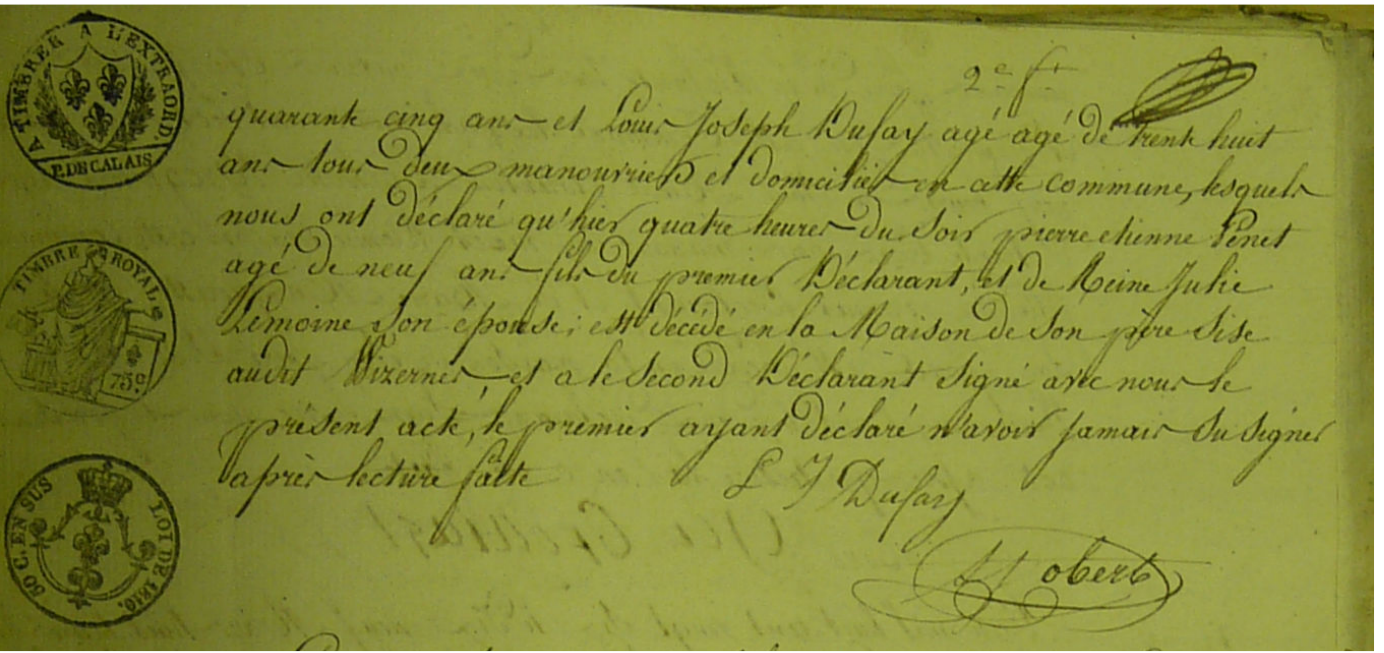 A TIMBRER A L'EXTRAORD.
P. DE CALAIS
TIMBRE ROYAL
75 c.
50 C. EN SUS LOI DE 1816.
2e. ft
quarante cinq ans et Louis Joseph Dufay agé agé de trente huit
ans tous deux manouvriers et domiciliés en cette commune, lesquels
nous ont déclaré qu'hier quatre heures du soir pierre etienne Penet
agé de neuf ans fils du premier Déclarant, et de Reine Julie
Lemoine son épouse; est décédé en la Maison de son père sise
audit Wizernes et a le second Déclarant signé avec nous le
présent acte, le premier ayant déclaré n'avoir jamais su signer
après lecture faite
L J Dufay